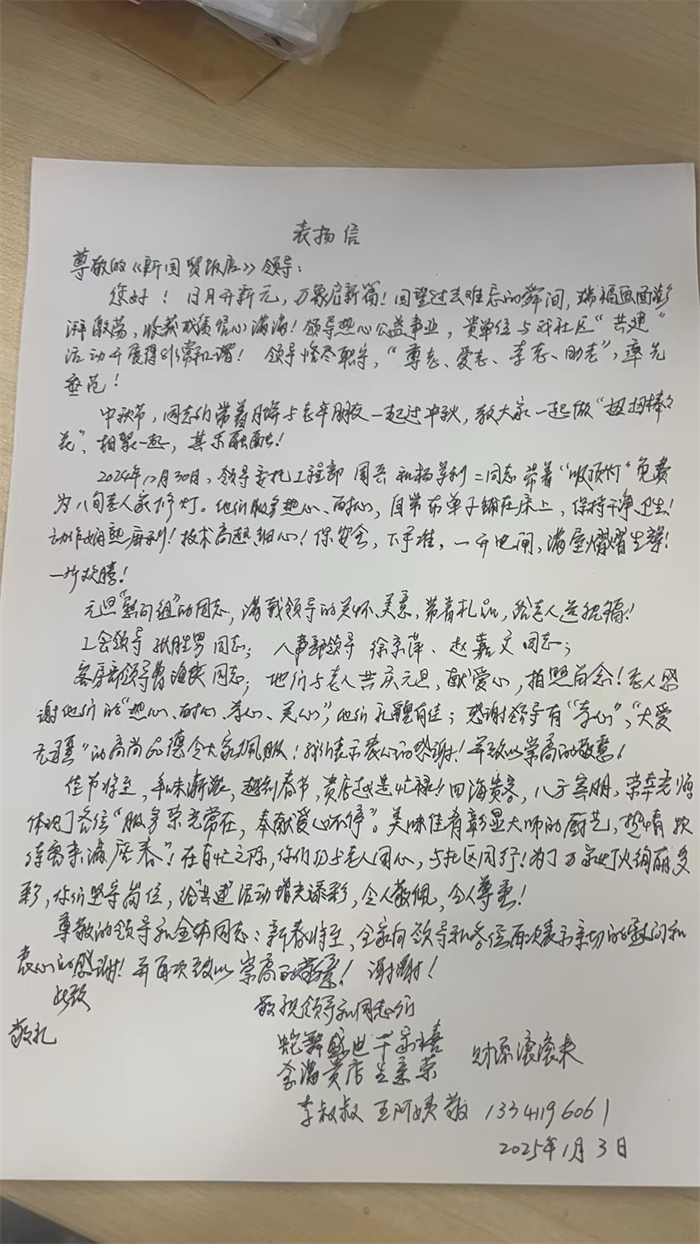 表扬信
尊敬的《新国贸饭店》领导:
您好！日月开新元，万象启新篇！回望过去难忘的瞬间，幸福画面澎
湃激荡，收获成绩信心满满！领导热心公益事业，贵单位与我社区“共建”
活动开展得非常和谐！领导恪尽职守，“尊老、爱老、孝老、助老”，率先
垂范！
中秋节，同志们带着月饼与老年朋友一起过中秋，教大家一起做“扭扭棒
花”，相聚一起，其乐融融！
2024年12月30日，领导委托工程部 周 和杨 利二同志带着“吸顶灯”免费
为八旬老人家修灯。他们服务热心、耐心，自带布单子铺在床上，保持干净卫生！
动作娴熟麻利！技术高超、细心！保安全，下手准，一开电闸，满屋熠熠生辉！
一片欢腾！
元旦“慰问组”的同志，满载领导的关怀、关爱，带着礼品，给老人送祝福！
工会领导 张胜男同志；人事部领导 徐京萍、赵嘉文同志；
客房部领导曹海英同志；他们与老人共庆元旦，献爱心，拍照留念！老人感
谢他们的“热心、耐心、孝心、关心”，他们礼貌有佳；感谢领导有“孝心”，“大爱
无疆”的高尚品德令大家佩服！我们表示衷心的感谢！并致以崇高的敬意！
佳节将至，年味渐浓，越到春节，贵店越是忙碌！四海贵客，八方宾朋，宾至如归
体现了各位“服务荣光常在，奉献爱心不停”。美味佳肴彰显大师的厨艺，热情款
待宾来满座春”！在百忙之际，你们仍与老人同心，与社区同行！为了万家灯火绚丽多
彩，你们坚守岗位，给“共建”活动增光添彩，令人敬佩，令人尊重！
尊敬的领导和全体同志：新春将至，全家向领导和各位再次表示亲切的慰问和
衷心的感谢！并再次致以崇高的敬意！谢谢！
此致
敬祝领导和同志们
敬礼
蛇舞盛世千家喜
金满贵店生意荣 财源滚滚来
李叔叔 王阿姨 敬 1334196061
2025年1月3日